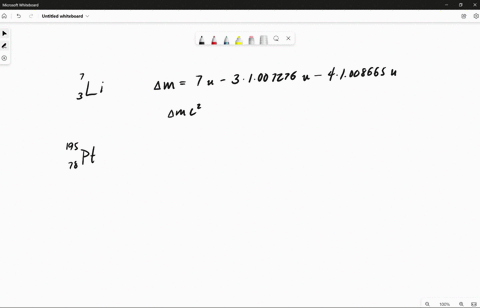 Microsoft Whiteboard
Untitled whiteboard
⁷₃Li Δm = 7 u - 3·1.007276 u - 4·1.008665 u
Δmc²
¹⁹⁵₇₈Pt
100%